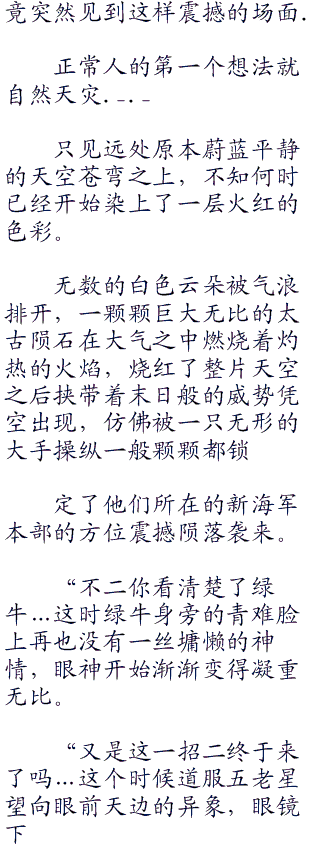 竟突然见到这样震撼的场面.
正常人的第一个想法就
自然天灾.-.-
只见远处原本蔚蓝平静
的天空苍弯之上，不知何时
已经开始染上了一层火红的
色彩。
无数的白色云朵被气浪
排开，一颗颗巨大无比的太
古陨石在大气之中燃烧着灼
热的火焰，烧红了整片天空
之后挟带着末日般的威势凭
空出现，仿佛被一只无形的
大手操纵一般颗颗都锁
定了他们所在的新海军
本部的方位震撼陨落袭来。
“不二你看清楚了绿
牛…这时绿牛身旁的青难脸
上再也没有一丝墉懒的神
情，眼神开始渐渐变得凝重
无比。
“又是这一招二终于来
了吗…这个时候道服五老星
望向眼前天边的异象，眼镜
下